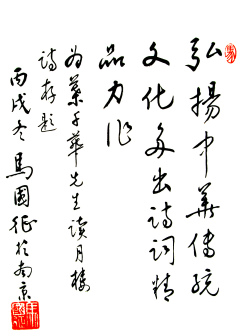 弘揚中華傳統
文化多出詩詞精
品力作
為葉子華先生讀月樓
詩存題
丙戌冬馬國征於南京